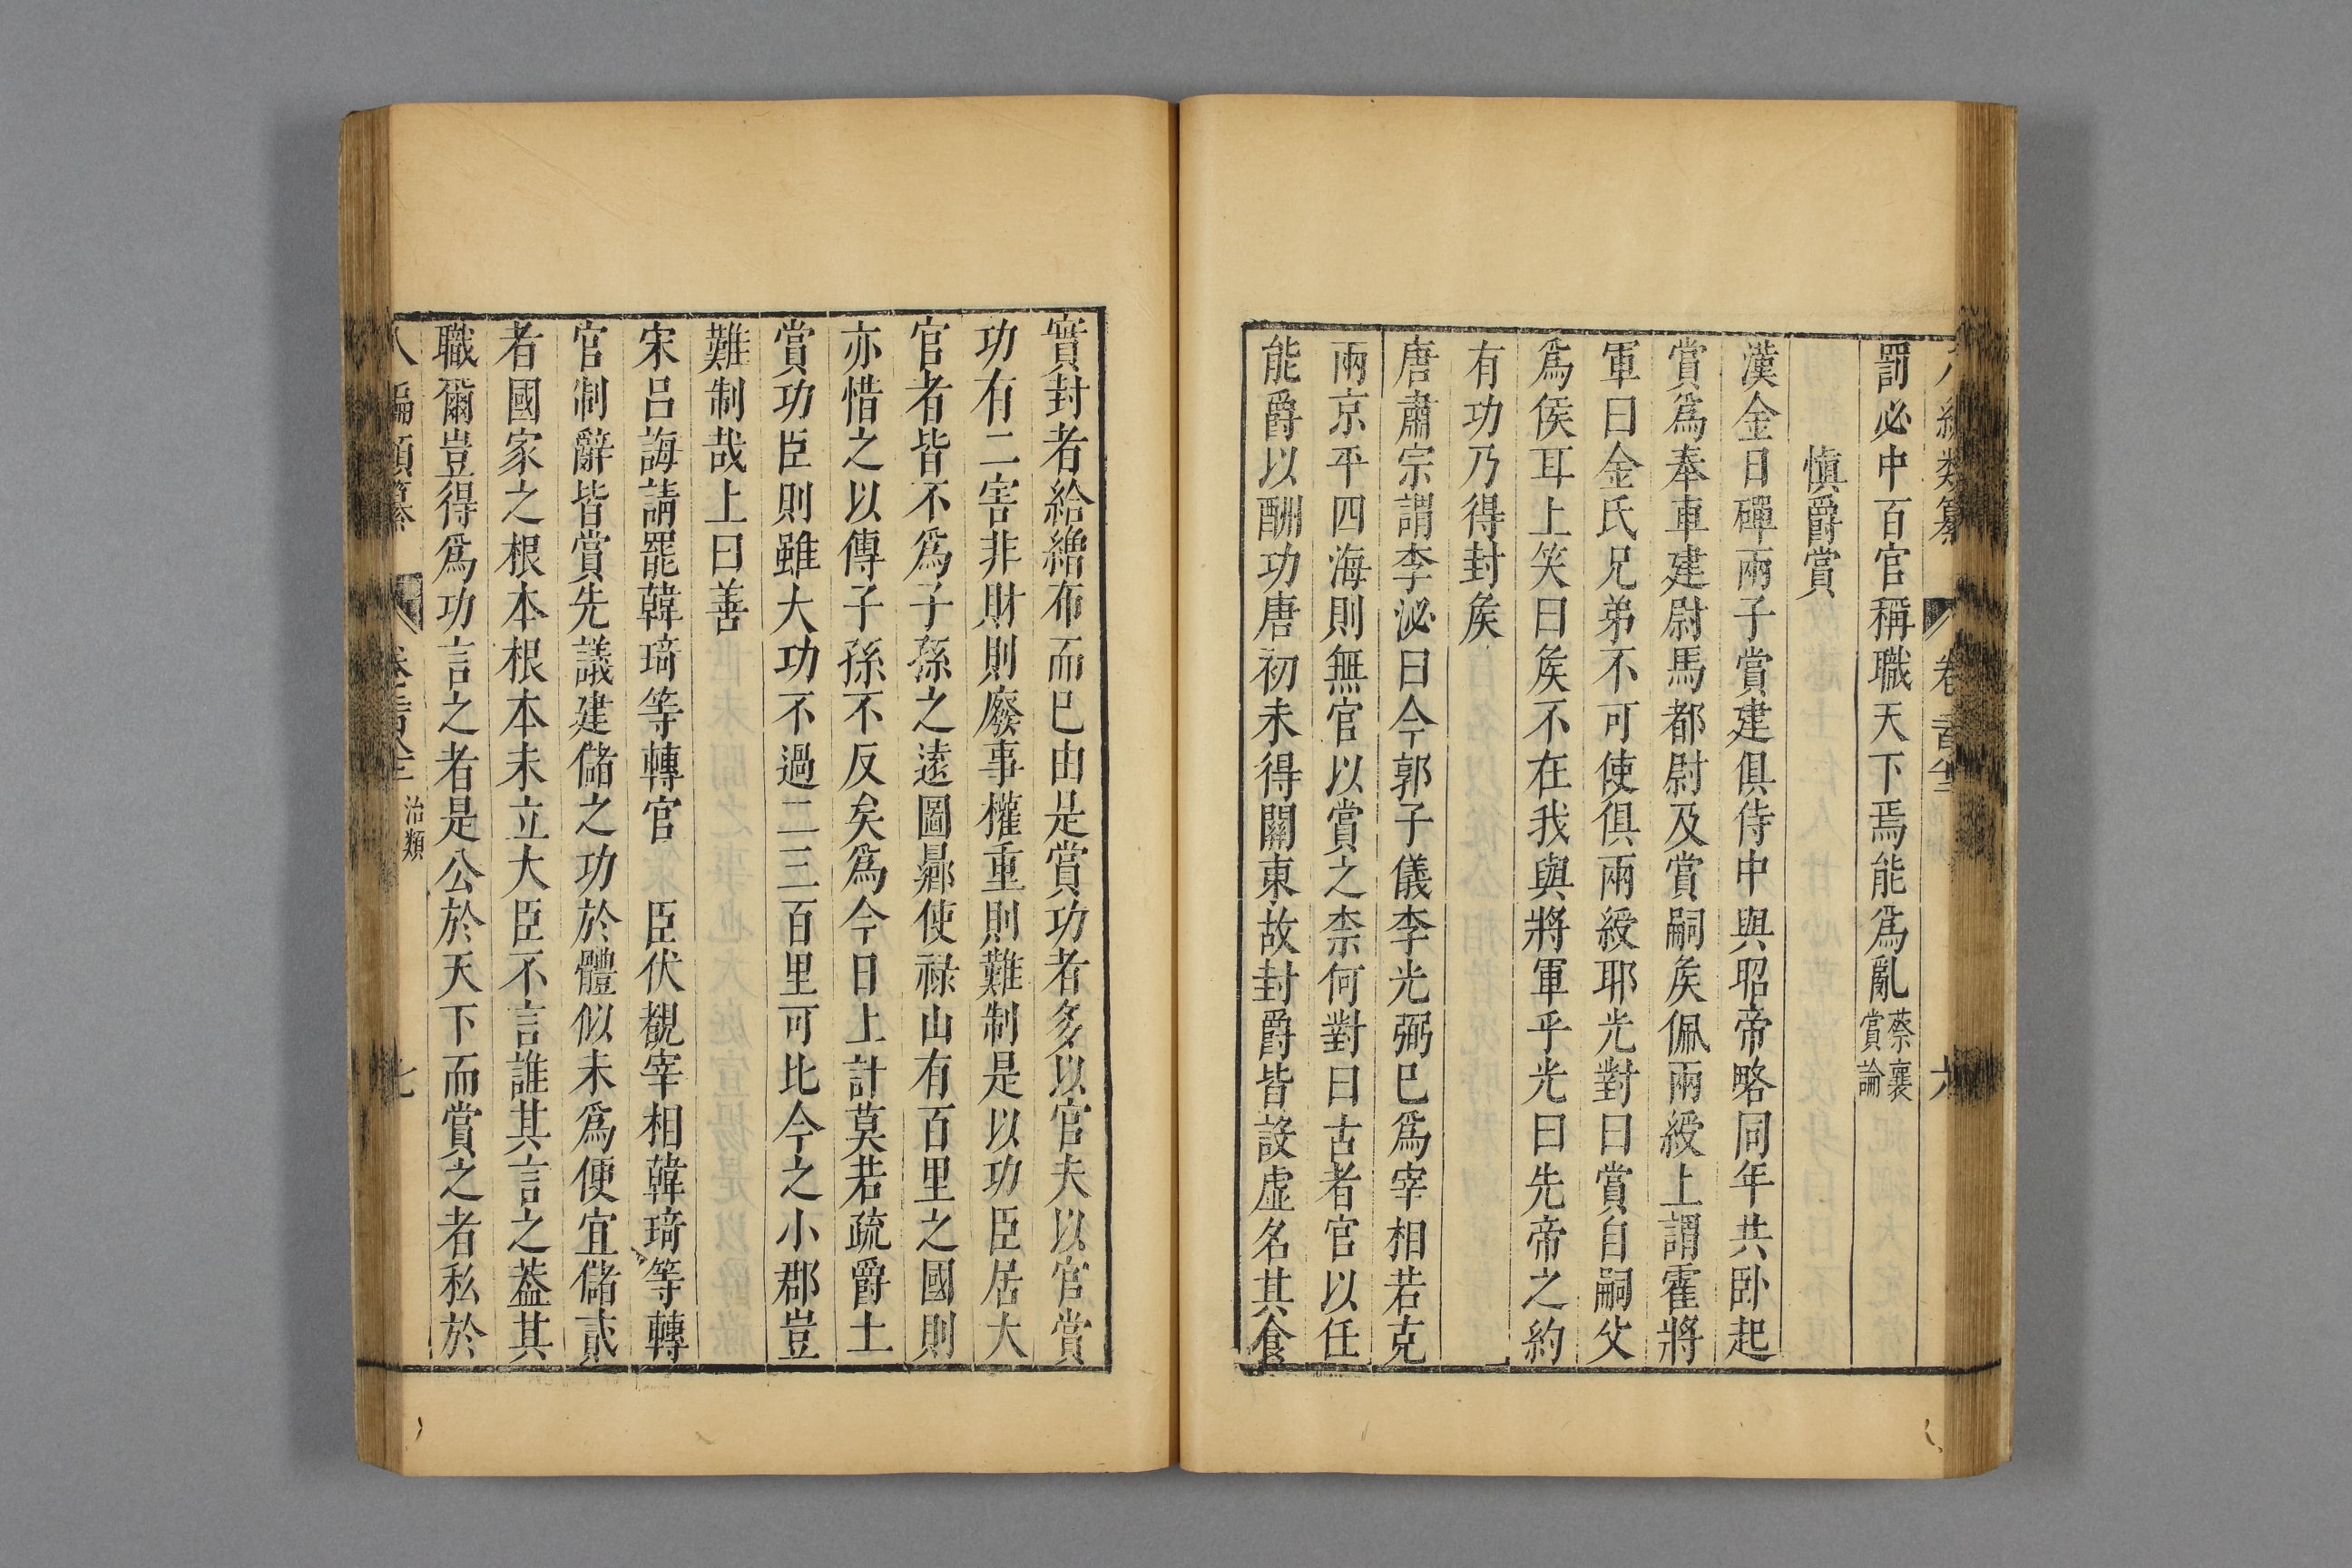 罰必中百官稱職天下焉能爲亂蔡襄賞論
愼爵賞
漢金日磾兩子賞建俱侍中與昭帝略同年共卧起
賞爲奉車建尉馬都尉及賞嗣矦佩兩綬上謂霍將
軍曰金氏兄弟不可使俱兩綬耶光對曰賞自嗣父
爲侯耳上笑曰矦不在我與將軍乎光曰先帝之約
有功乃得封矦
唐肅宗謂李泌曰今郭子儀李光弼已爲宰相若克
兩京平四海則無官以賞之柰何對曰古者官以任
能爵以酬功唐初未得關東故封爵皆設虛名其食
實封者給繒布而已由是賞功者多以官夫以官賞
功有二害非財則廢事權重則難制是以功臣居大
官者皆不爲子孫之逺圖曏使祿山有百里之國則
亦惜之以傳子孫不反矣爲今日上計莫若疏爵土
賞功臣則雖大功不過二三百里可比今之小郡豈
難制哉上曰善
宋呂誨請罷韓琦等轉官 臣伏覩宰相韓琦等轉
官制辭皆賞先議建儲之功於體似未爲便宜儲貳
者國家之根本根本未立大臣不言誰其言之葢其
職爾豈得爲功言之者是公於天下而賞之者私於
治類